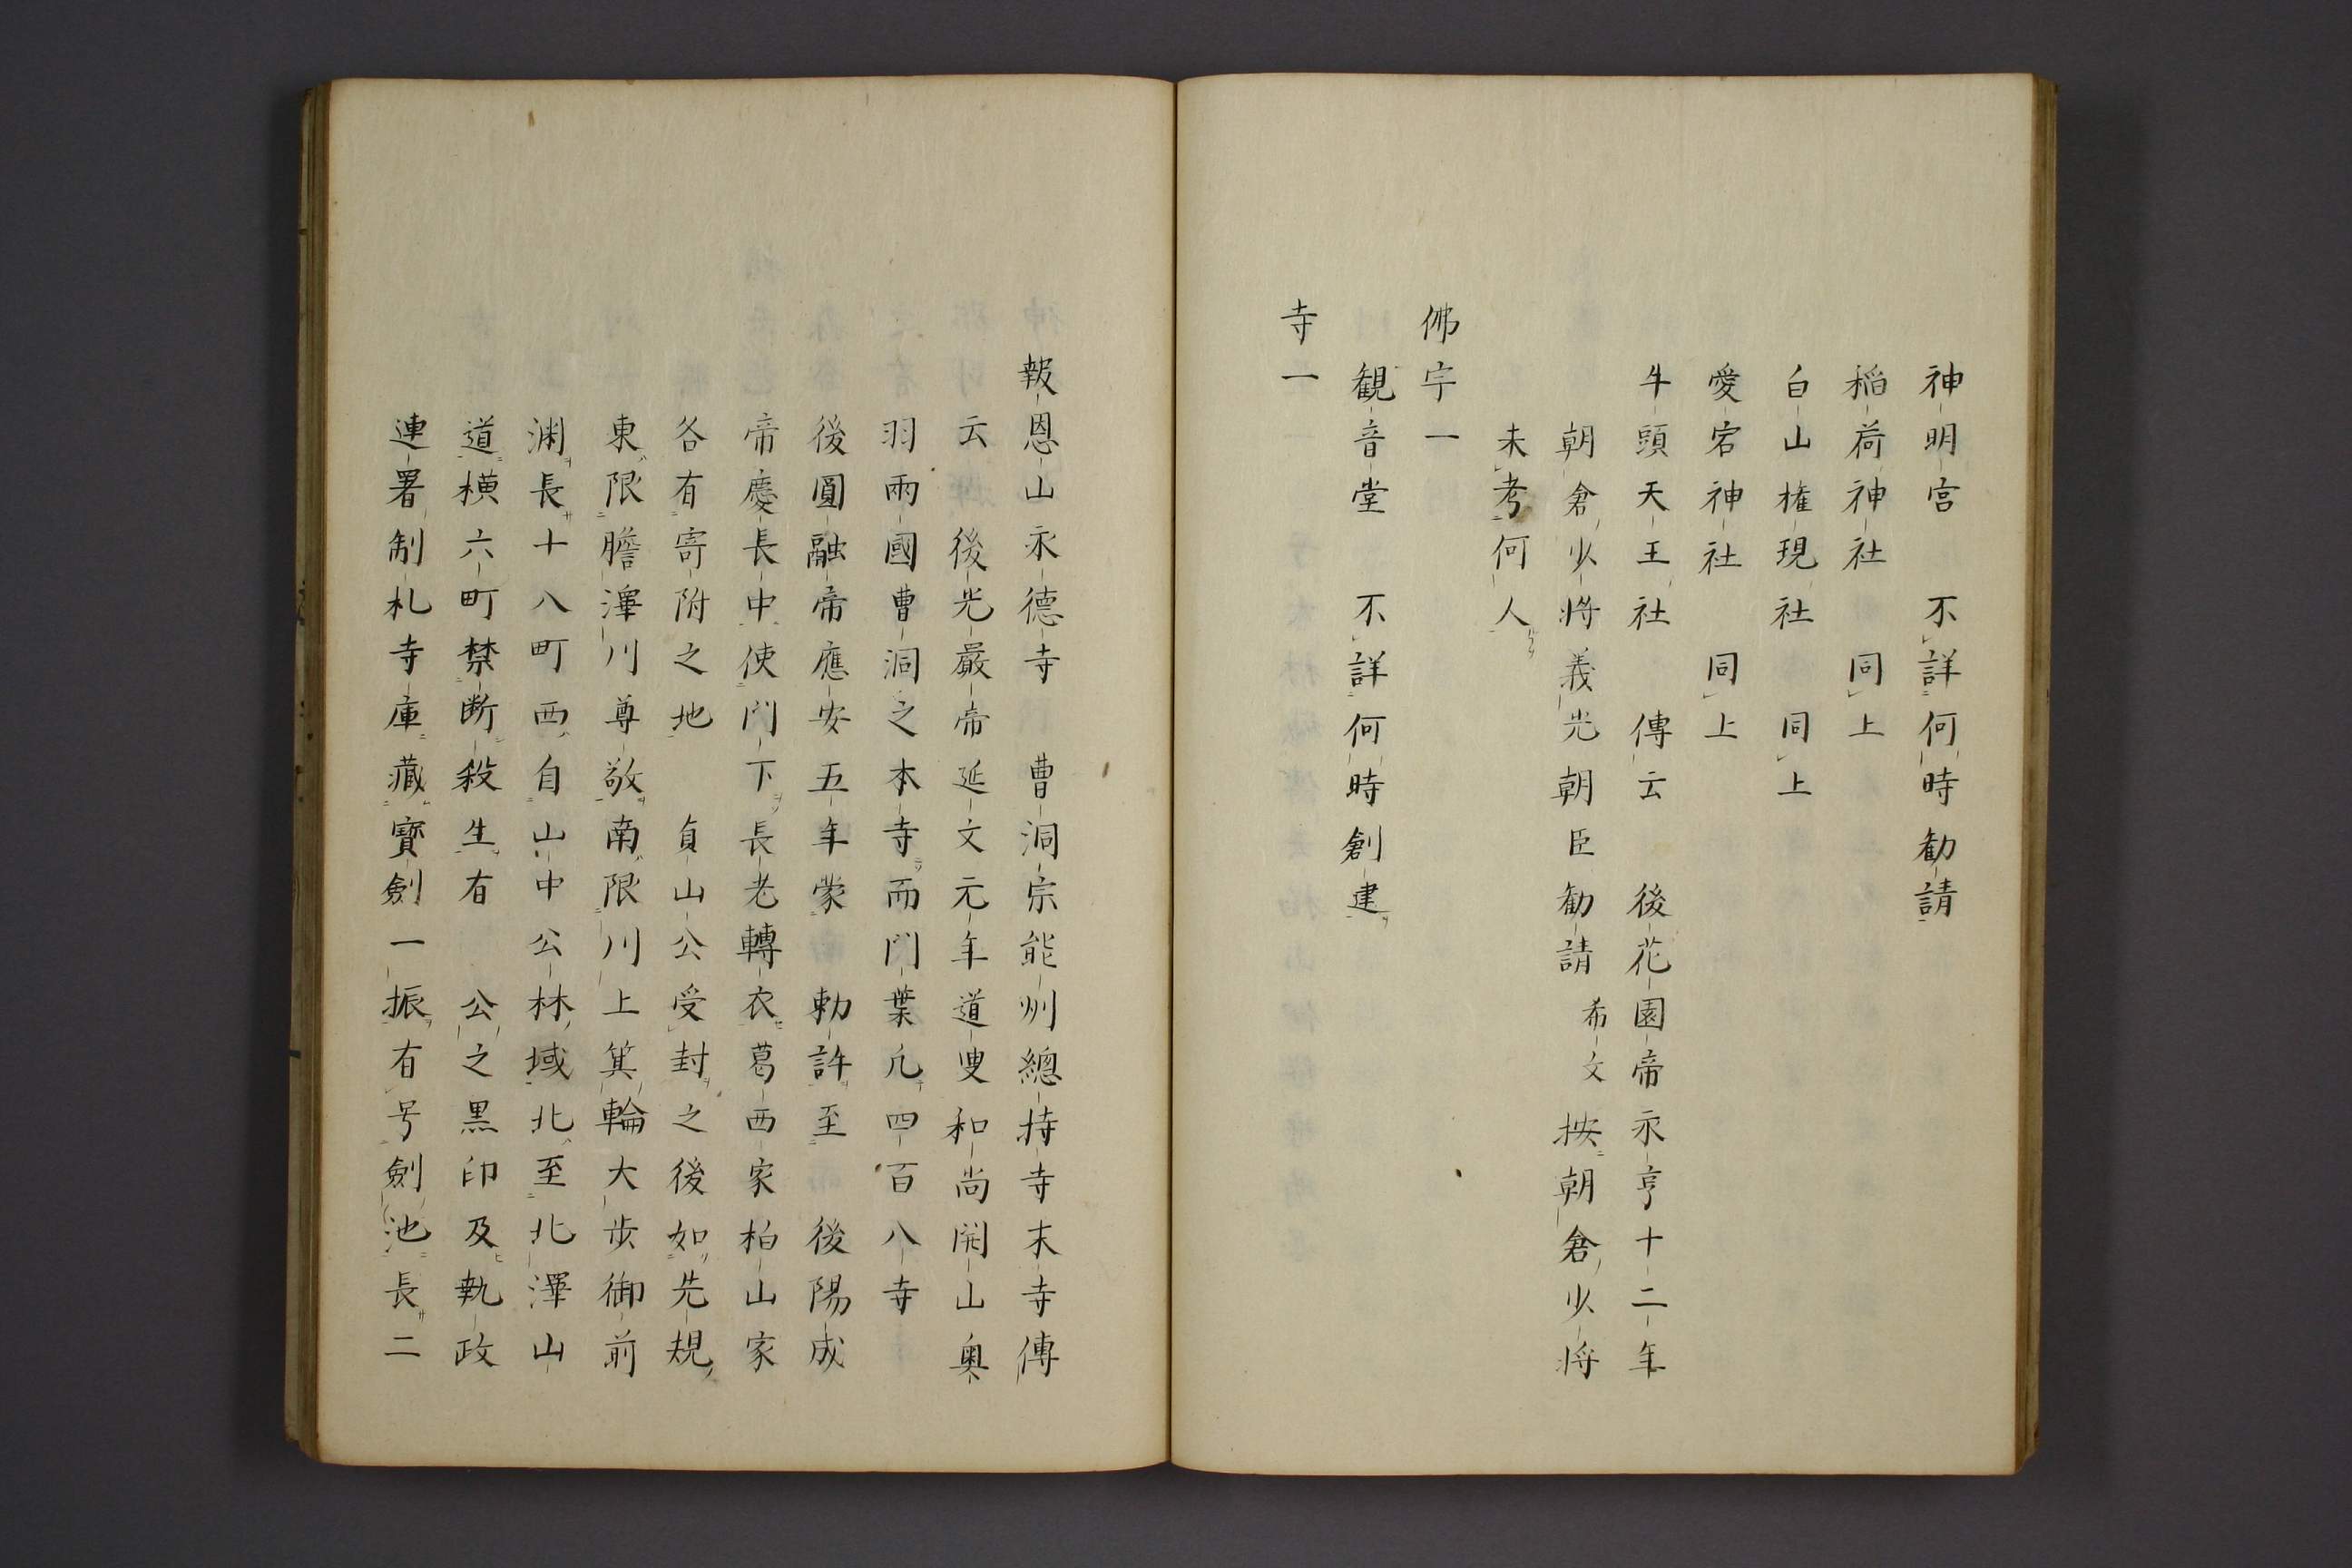 神明宮　不詳何時勧請
稲荷神社　同上
白山権現社　同上
愛宕神社　同上
牛頭天王社　傳云　後花園帝永亨十二年
朝倉少将義光朝臣勧請　希文按朝倉少将
未考何人
佛宇一
観音堂　不詳何時創建
寺一
報恩山永德寺　曹洞宗能州總持寺末寺傳
云　後光嚴帝延文元年道叟和尚開山奥
羽兩國曹洞之本寺而門葉凡四百八寺
後圓融帝應安五年蒙　勅許至　後陽成
帝慶長中使門下長老轉衣葛西家柏山家
各有寄附之地　貞山公受封之後如先規
東限膽澤川尊敬南限川上箕輪大歩御前
渊長十八町西自山中公林域北至北澤山
道横六町禁断殺生有　公之黒印及執政
連署制札寺庫藏寶劍一振有号劍池長二